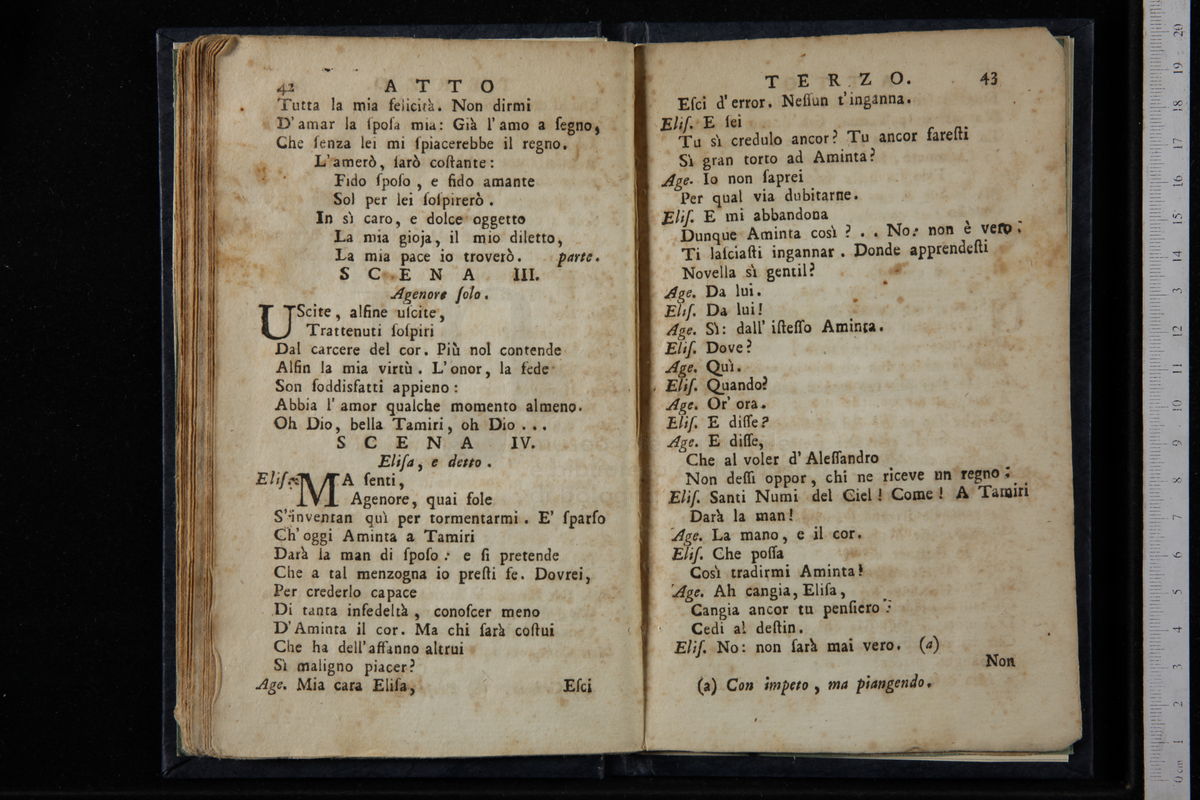 42 ATTO
Tutta la mia felicità. Non dirmi
D'amar la ſpoſa mia: Già l'amo a ſegno,
Che ſenza lei mi ſpiacerebbe il regno.
L'amerò, ſarò coſtante:
Fido ſpoſo, e fido amante
Sol per lei ſoſpirerò.
In sì caro, e dolce oggetto
La mia gioja, il mio diletto,
La mia pace io troverò. parte.
SCENA III.
Agenore ſolo.
UScite, alfine uſcite,
Trattenuti ſoſpiri
Dal carcere del cor. Più nol contende
Alfin la mia virtù. L'onor, la fede
Son ſoddisfatti appieno:
Abbia l'amor qualche momento almeno.
Oh Dio, bella Tamiri, oh Dio...
SCENA IV.
Eliſa, e detto.
Eliſ. MA ſenti,
Agenore, quai fole
S'inventan quì per tormentarmi. E' ſparſo
Ch'oggi Aminta a Tamiri
Darà la man di ſpoſo: e ſi pretende
Che a tal menzogna io preſti fe. Dovrei,
Per crederlo capace
Di tanta infedeltà, conoſcer meno
D'Aminta il cor. Ma chi ſarà coſtui
Che ha dell'affanno altrui
Sì maligno piacer?
Age. Mia cara Eliſa,
Eſci
TERZO. 43
Eſci d'error. Neſſun t'inganna.
Eliſ. E ſei
Tu sì credulo ancor? Tu ancor fareſti
Sì gran torto ad Aminta?
Age. Io non ſaprei
Per qual via dubitarne.
Eliſ. E mi abbandona
Dunque Aminta così?.. No: non è vero:
Ti laſciaſti ingannar. Donde apprendeſti
Novella sì gentil?
Age. Da lui.
Eliſ. Da lui!
Age. Sì: dall'iſteſſo Aminta.
Eliſ. Dove?
Age. Quì.
Eliſ. Quando?
Age. Or'ora.
Eliſ. E diſſe?
Age. E diſſe,
Che al voler d'Aleſſandro
Non deſſi oppor, chi ne riceve un regno:
Eliſ. Santi Numi del Ciel! Come! A Tamiri
Darà la man!
Age. La mano, e il cor.
Eliſ. Che poſſa
Così tradirmi Aminta!
Age. Ah cangia, Eliſa,
Cangia ancor tu penſiero:
Cedi al deſtin.
Eliſ. No: non ſarà mai vero. (a)
Non
(a) Con impeto, ma piangendo.
0 cm 1 2 3 4 5 6 7 8 9 10 11 12 13 14 15 16 17 18 19 20